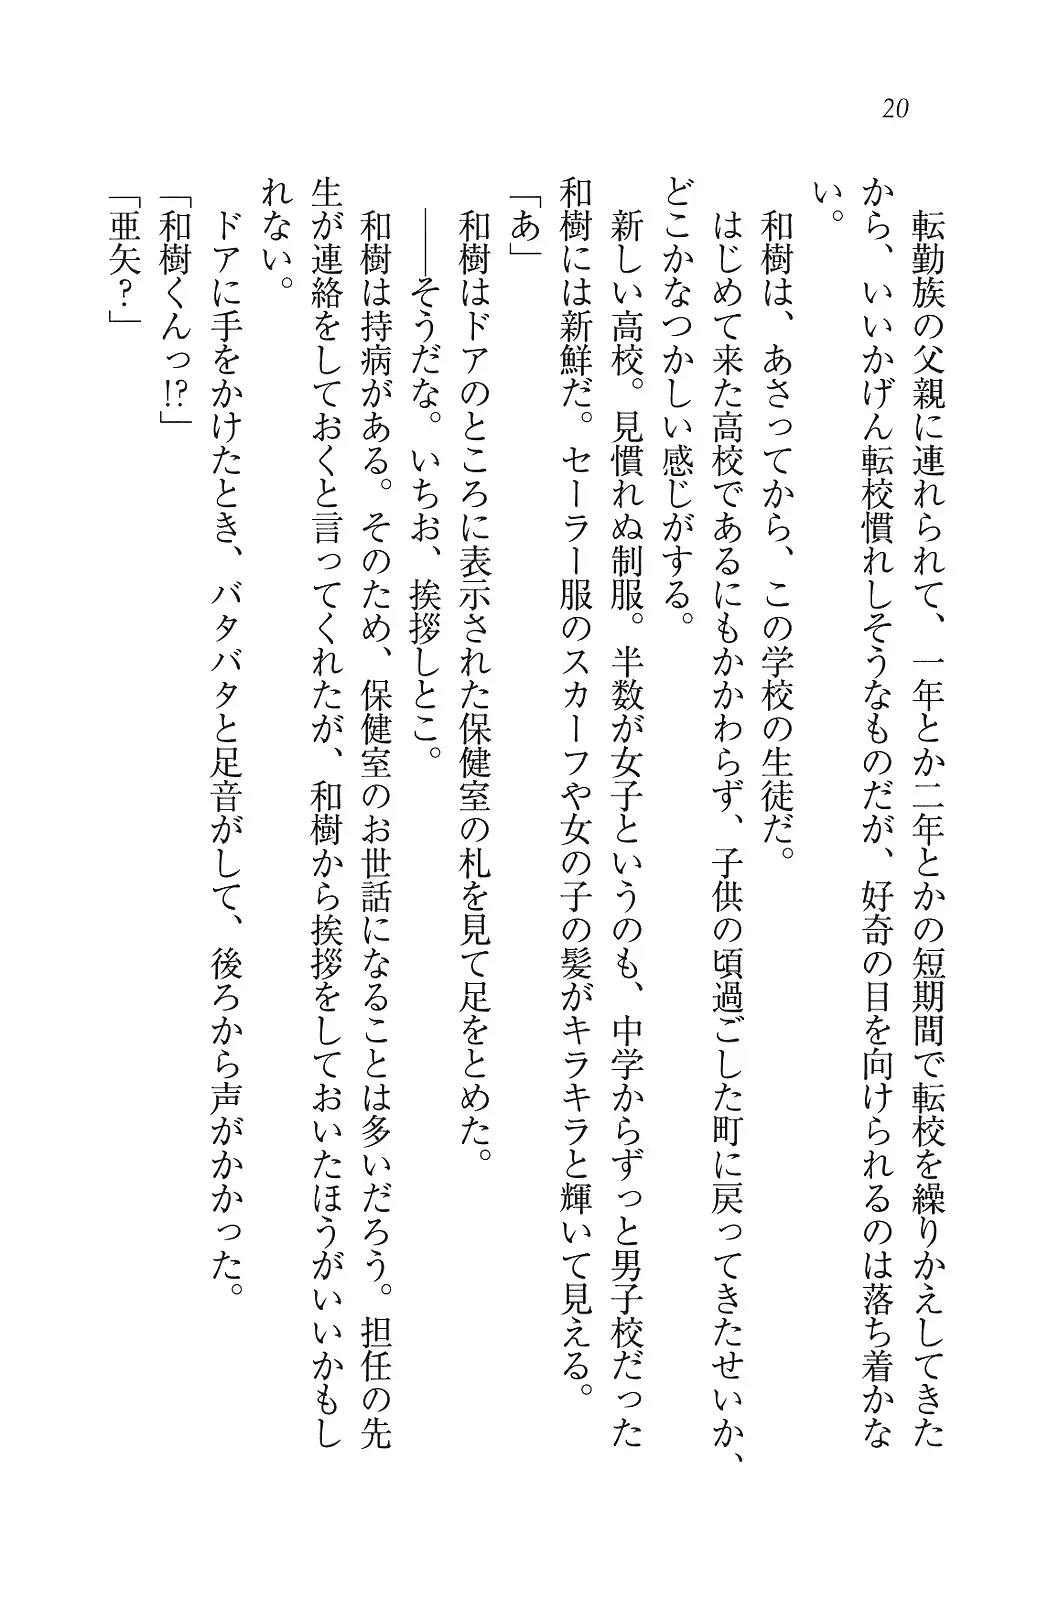 20
転勤族の父親に連れられて、一年とか二年とかの短期間で転校を繰りかえしてきた
から、いいかげん転校慣れしそうなものだが、好奇の目を向けられるのは落ち着かな
い。
和樹は、あさってから、この学校の生徒だ。
はじめて来た高校であるにもかかわらず、子供の頃過ごした町に戻ってきたせいか、
どこかなつかしい感じがする。
新しい高校。見慣れぬ制服。半数が女子というのも、中学からずっと男子校だった
和樹には新鮮だ。セーラー服のスカーフや女の子の髪がキラキラと輝いて見える。
「あ」
和樹はドアのところに表示された保健室の札を見て足をとめた。
――そうだな。いちお、挨拶しとこ。
和樹は持病がある。そのため、保健室のお世話になることは多いだろう。担任の先
生が連絡をしておくと言ってくれたが、和樹から挨拶をしておいたほうがいいかもし
れない。
ドアに手をかけたとき、バタバタと足音がして、後ろから声がかかった。
「和樹くんっ!?」
「亜矢?」